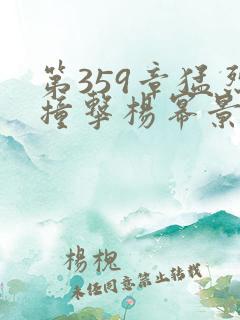 第359章猛烈
撞撃杨幂景
杨槐
未经同意禁止转载